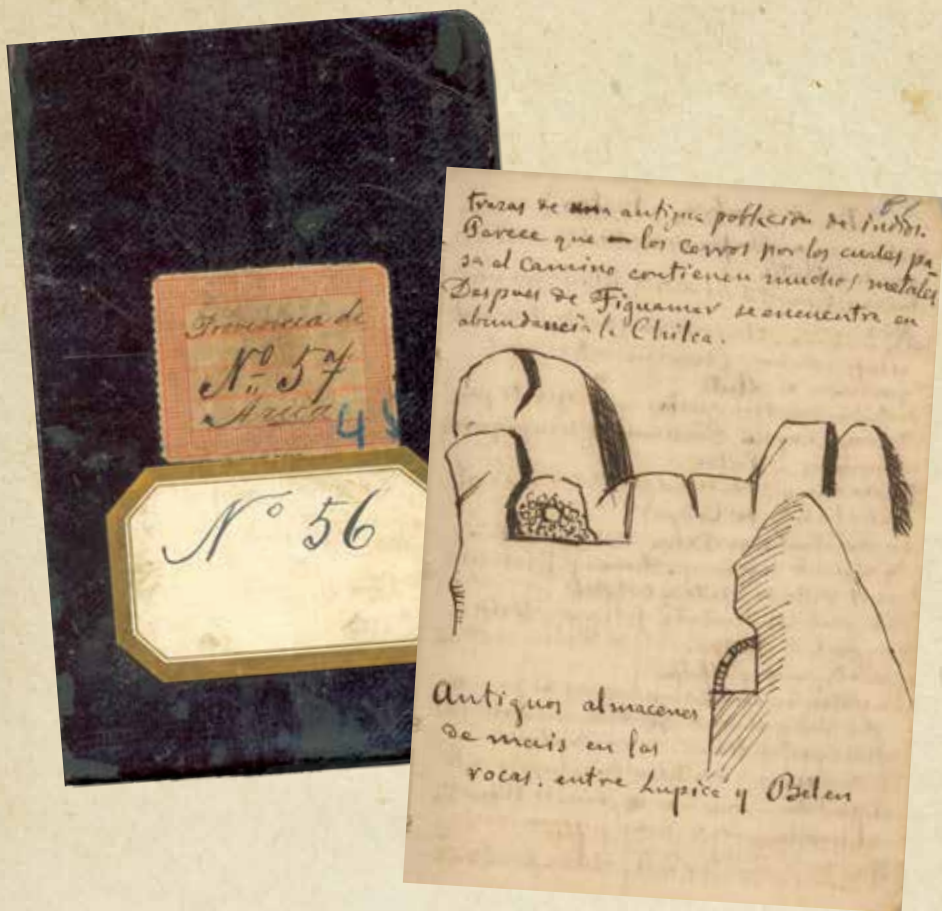 Provincia de
Nº 57
Arica
Nº 56
trazas de una antigua poblacion de indios.
Parece que los cerros por los cuales pa
sa el camino contienen muchos metales
Despues de Tignamar se encuentra en
abundancia la Chilca.
Antiguos almacenes
de mais en las
rocas. entre Lupica y Belen